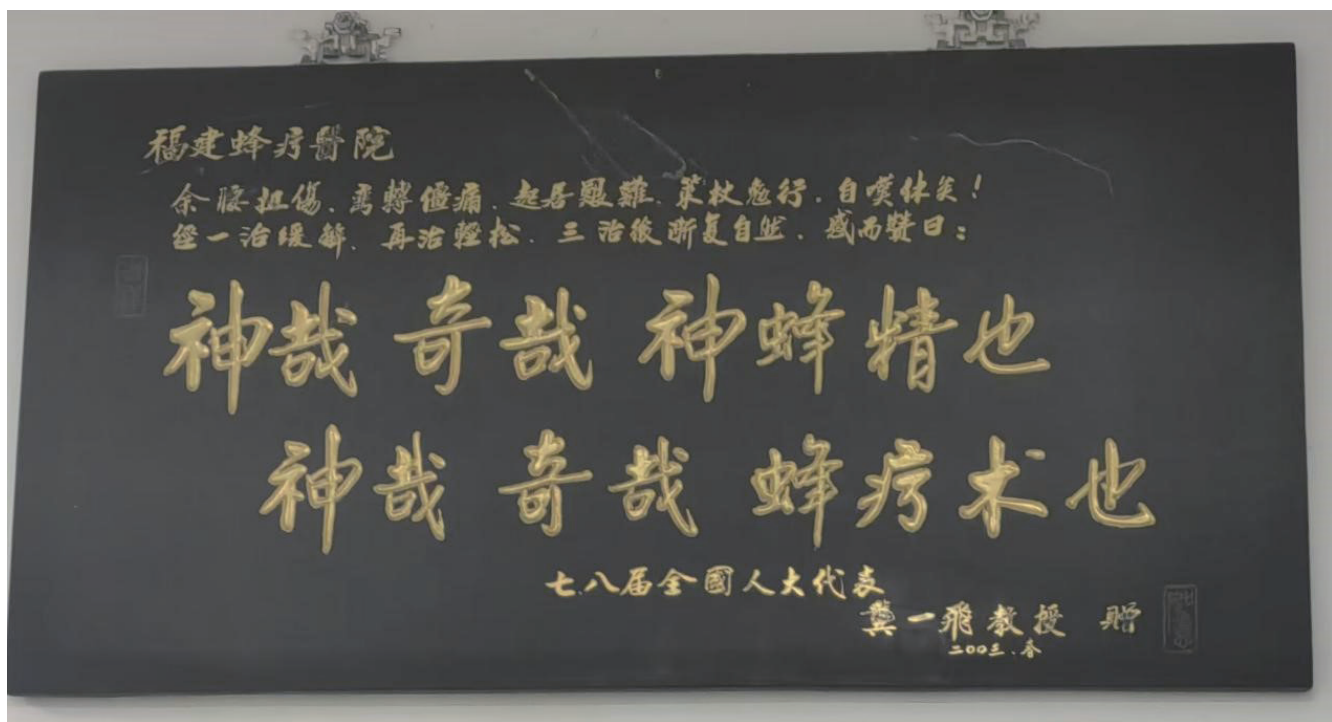 福建蜂疗醫院
余腰扭傷、弯轉僵痛、起居艱難、策杖愈行、自嘆休矣!
經一治缓解、再治輕松、三治後漸复自然、感而贊曰:
神哉 奇哉 神蜂精也
神哉 奇哉 蜂疗术也
七.八届全國人大代表
龔一飛教授 贈
二00三.春